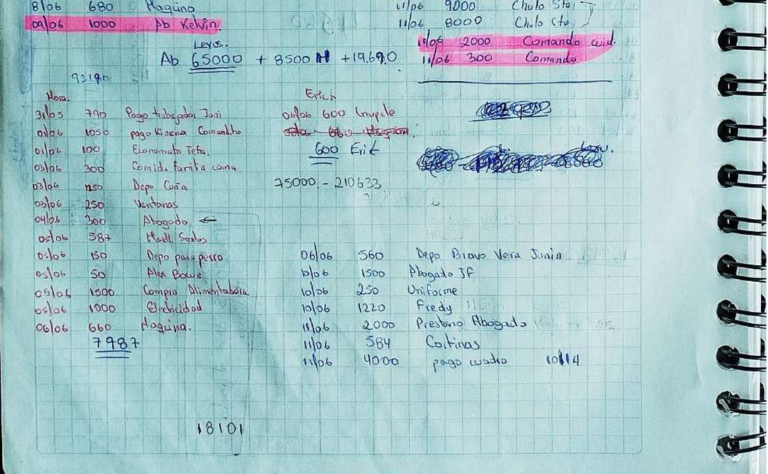 8/06 680 Maquina
09/06 1000 Ab Kelvin.
11/06 9000 Chulo Sto.
11/06 8000 Chulo Sto.
11/06 2000 Comando
11/06 300 Comando
Ab 65000 + 8500 H + 19,690
92190
31/05 790 Pago trabajador Juni
01/06 1050 pago Kinena Comandito
01/06 100 Economato Tefa.
03/06 300 Comida Farita
03/06 250 Depo Caña
03/06 250 Ventanas
04/06 300 Abogado ←
05/06 587 Mstll Santos
05/06 150 Depo para perro
05/06 50 Alex Bowe
05/06 1500 Compra Alimentadora
05/06 1000 Electricidad
06/06 660 Maquina.
7987
Erick
06/06 600 Grupete
600 Erik
75000 - 210633
06/06 560 Depo Bravo Vera Junin
10/06 1500 Abogado JF
10/06 250 Uniforme
10/06 1220 Fredy
11/06 2000 Prestamo Abogado
11/06 584 Cortinas
11/06 4000 pago wadro 10114
18101